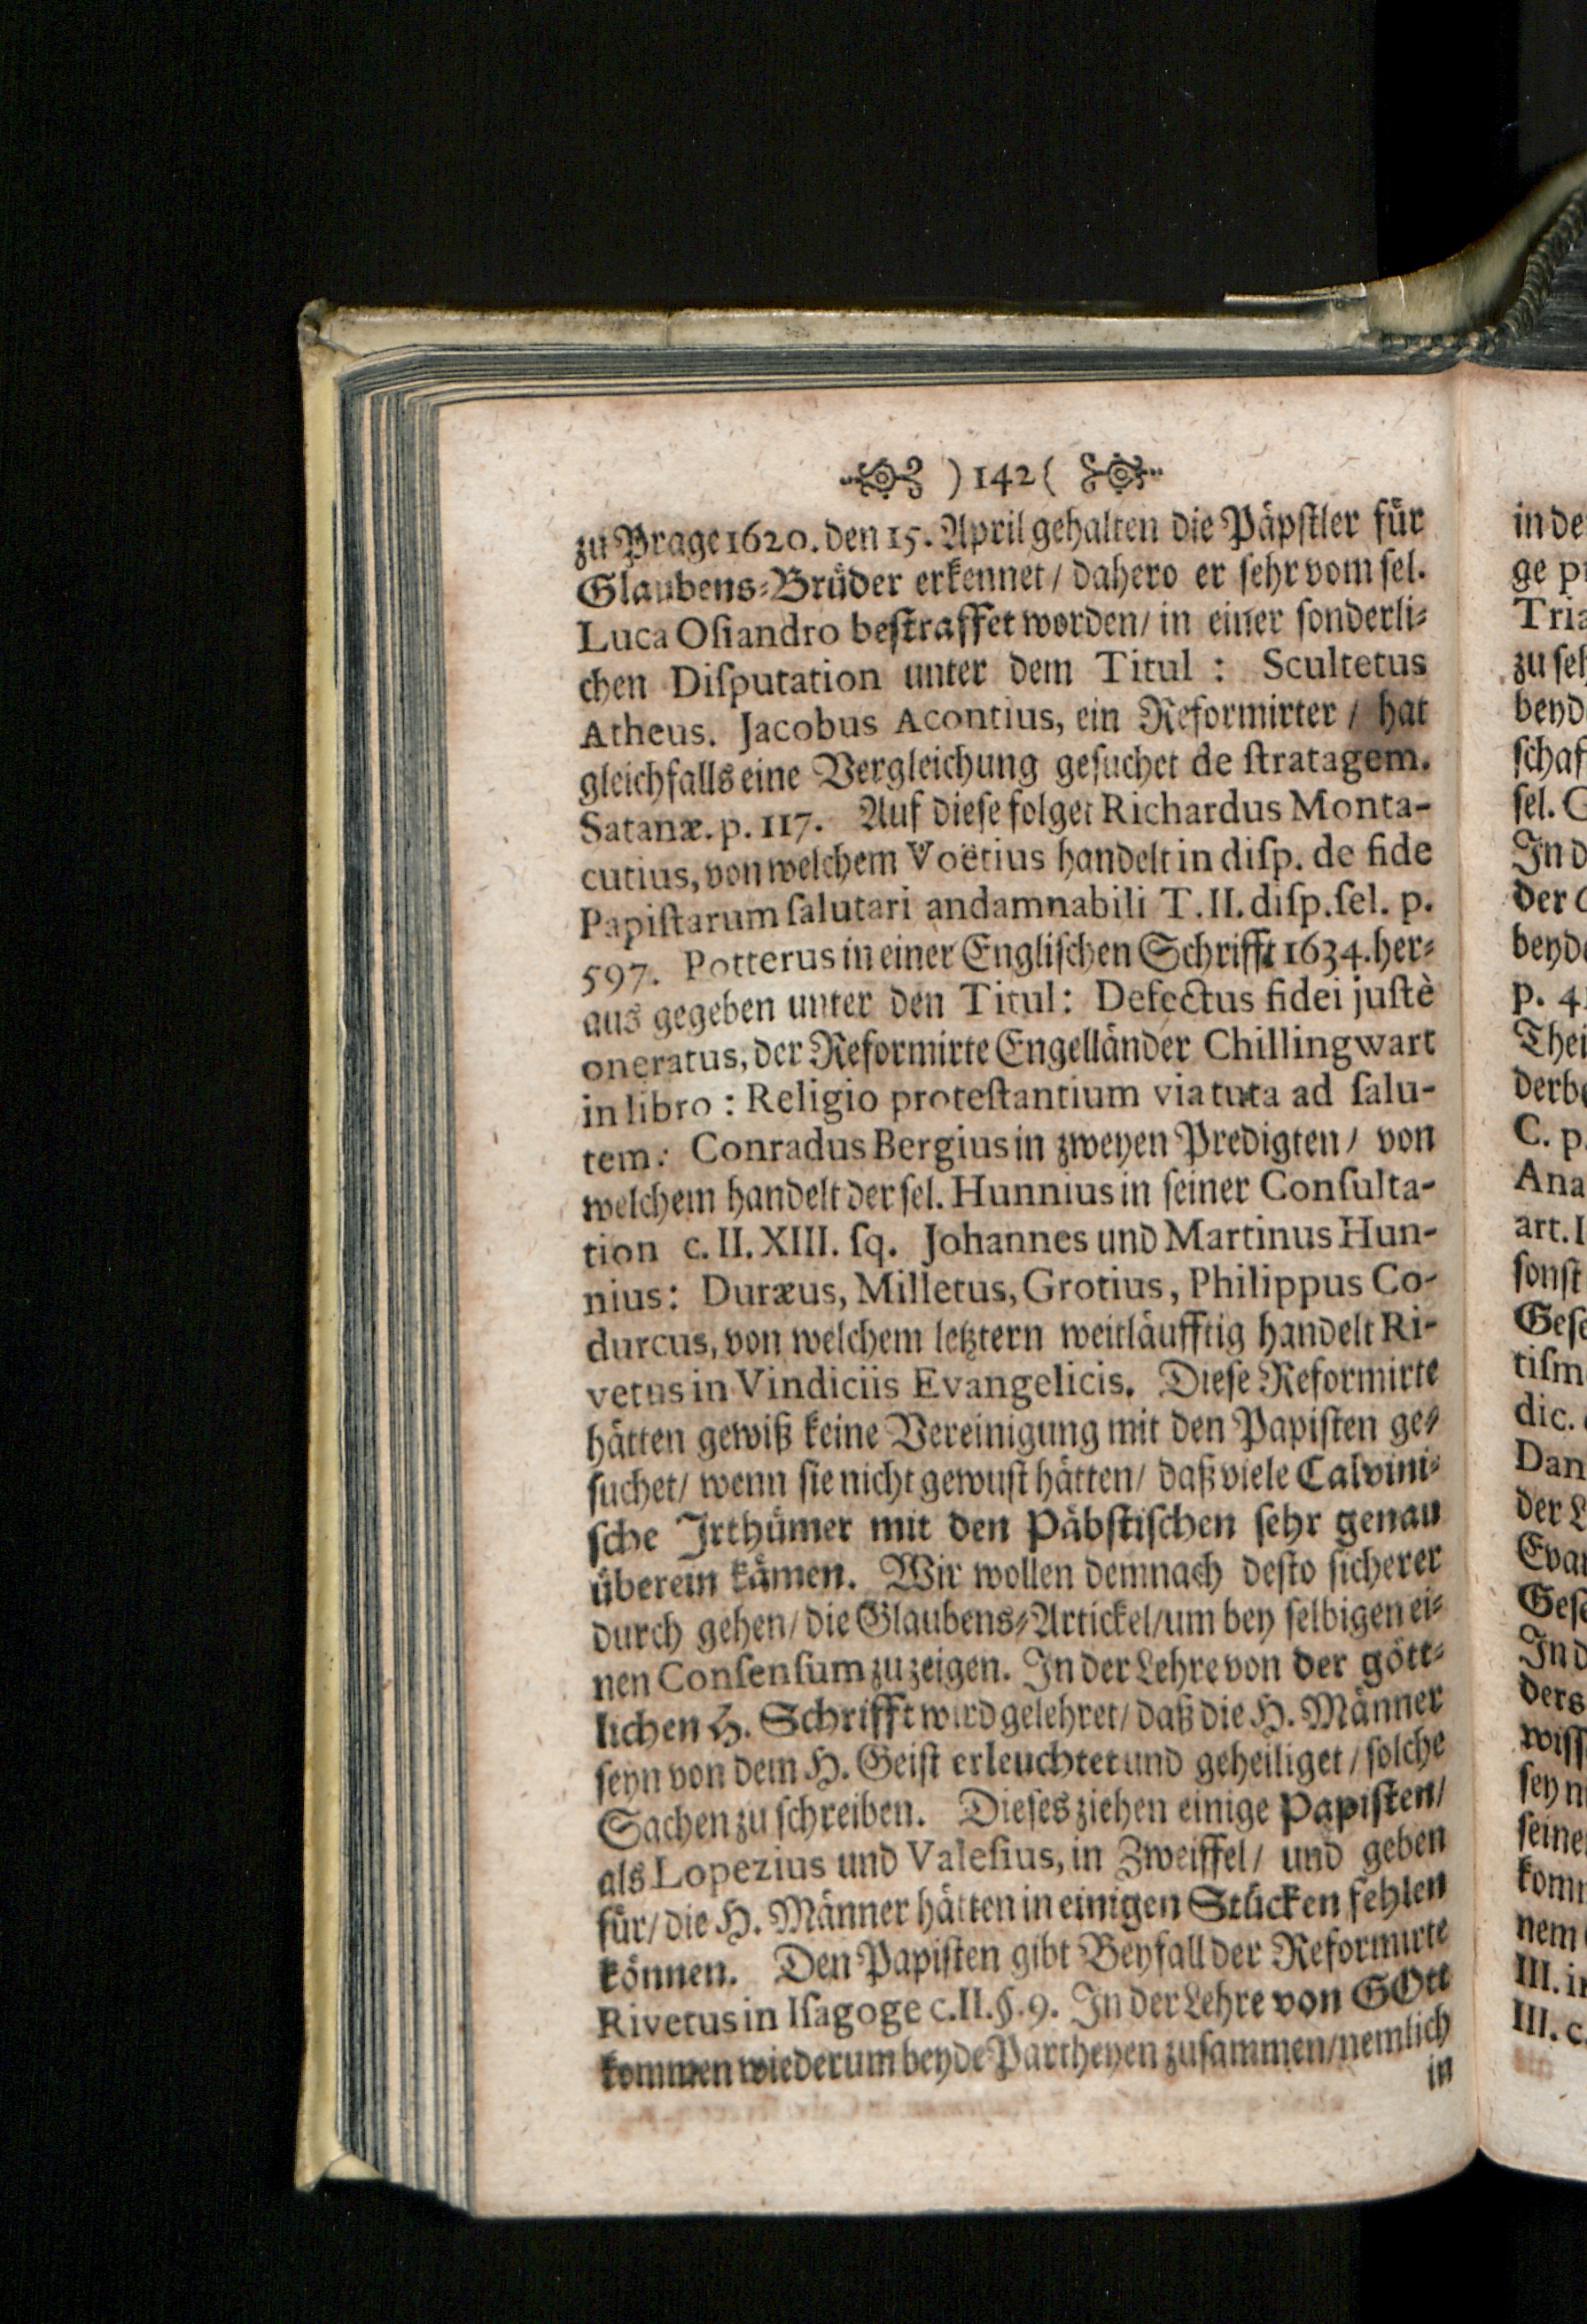 )142(
zu Prage 1620. den 15. April gehalten die Päpſtler für
Glaubens-Brüder erkennet / dahero er ſehr vom ſel.
Luca Oſiandro beſtraffet worden / in einer ſonderli-
chen Diſputation unter dem Titul : Scultetus
Atheus. Jacobus Acontius, ein Reformirter / hat
gleichfalls eine Vergleichung geſuchet de ſtratagem.
Satanæ. p. 117. Auf dieſe folget Richardus Monta-
cutius, von welchem Voëtius handelt in diſp. de fide
Papiſtarum ſalutari andamnabili T. II. diſp. ſel. p.
597. Potterus in einer Engliſchen Schrifft 1634. her-
aus gegeben unter den Titul: Defectus fidei juſtè
oneratus, der Reformirte Engelländer Chillingwart
in libro : Religio proteſtantium via tuta ad ſalu-
tem: Conradus Bergius in zweyen Predigten / von
welchem handelt der ſel. Hunnius in ſeiner Conſulta-
tion c. II. XIII. ſq. Johannes und Martinus Hun-
nius: Duræus, Milletus, Grotius, Philippus Co-
durcus, von welchem letztern weitläufftig handelt Ri-
vetus in Vindiciis Evangelicis. Dieſe Reformirte
hätten gewiß keine Vereinigung mit den Papiſten ge-
ſuchet / wenn ſie nicht gewuſt hätten / daß viele Calvini-
ſche Jrthümer mit den Päbſtiſchen ſehr genau
überein kämen. Wir wollen demnach deſto ſicherer
durch gehen / die Glaubens-Artickel / um bey ſelbigen ei-
nen Conſenſum zu zeigen. In der Lehre von der gött-
lichen H. Schrifft wird gelehret / daß die H. Männer
ſeyn von dem H. Geiſt erleuchtet und geheiliget / ſolche
Sachen zu ſchreiben. Dieſes ziehen einige Papiſten /
als Lopezius und Valeſius, in Zweiffel / und geben
für / die H. Männer hätten in einigen Stücken fehlen
können. Den Papiſten gibt Beyfall der Reformirte
Rivetus in Iſagoge c. II. §. 9. In der Lehre von GOtt
kommen wiederum beyde Partheyen zuſammen / nemlich
in
in de
ge p
Tria
zu ſeh
beyd
ſchaf
ſel. G
In d
der
beyde
p. 4
Thei
derb
C. p
Ana
art. I
ſonſt
Geſe
tiſm
dic.
Dan
der L
Evan
Geſe
In d
ders
wiſſ
ſeyn
ſeine
kom
nem
III. i
III. c.